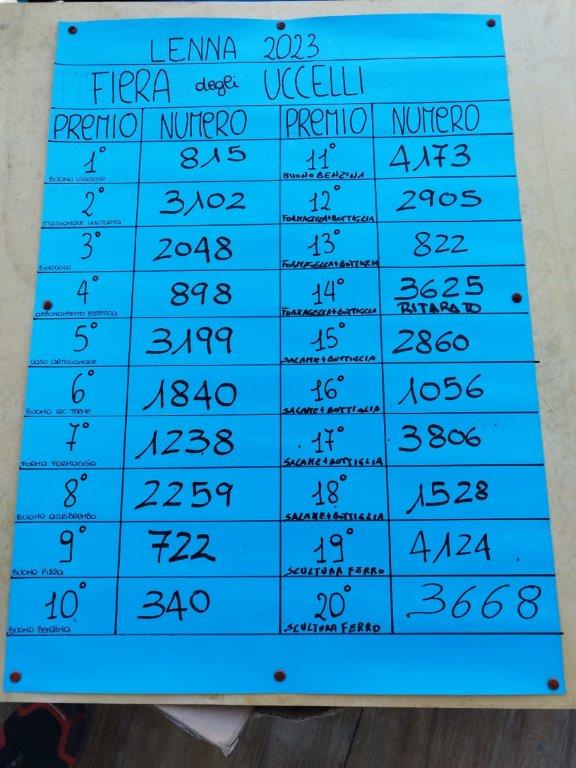 LENNA 2023
FIERA degli UCCELLI
PREMIO NUMERO PREMIO NUMERO
1° 815 11° 4173
BUONO VIAGGIO BUONO BENZINA
2° 3102 12° 2905
STAGIONALE VALTORTA FORMAGELLA+BOTTIGLIA
3° 2048 13° 822
BINOCOLO FORMAGELLA+BOTTIGLIA
4° 898 14° 3625
ABBONAMENTO ESTETICA FORMAGELLA+BOTTIGLIA RITARATO
5° 3199 15° 2860
VASO ARTIGIONALE SALAME+BOTTIGLIA
6° 1840 16° 1056
BUONO QC TERME SALAME+BOTTIGLIA
7° 1238 17° 3806
FORMA FORMAGGIO SALAME+BOTTIGLIA
8° 2259 18° 1528
BUONO AGRIBREMBO SALAME+BOTTIGLIA
9° 722 19° 4124
BUONO PIZZA SCULTURA FERRO
10° 340 20° 3668
BUONO BENZINA SCULTURA FERRO